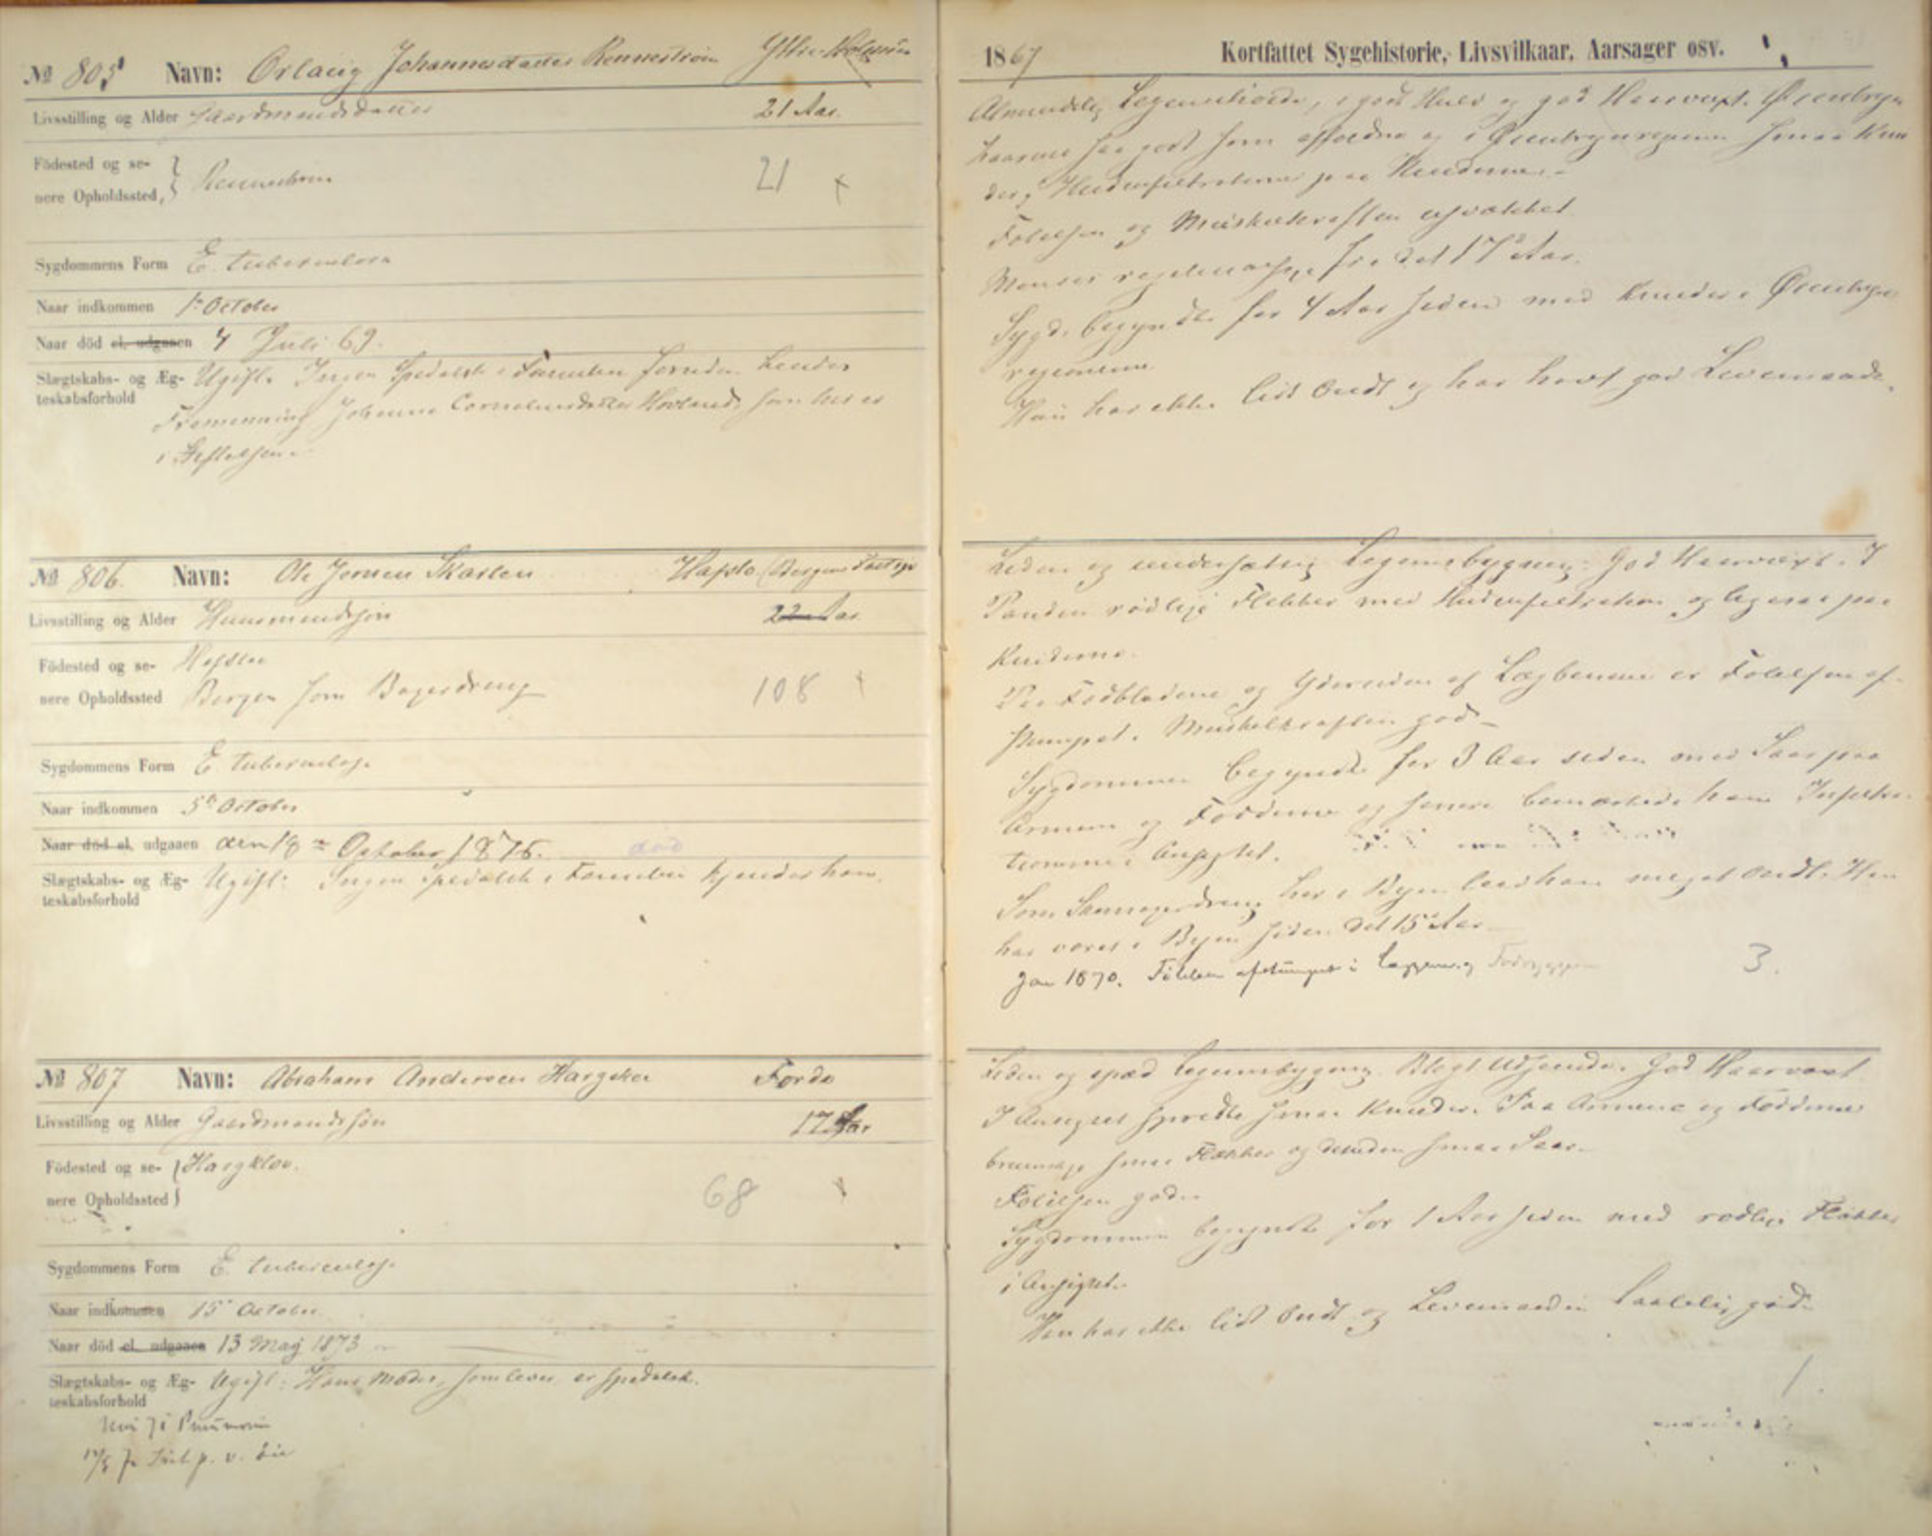 № 805 Navn: Orlaug Johannesdatter Rennestraum Yttre Holmedal
Livsstilling og Alder Gaardmandsdatter 21 Aar.
Födested og se-
nere Opholdssted, 21
Sygdommens Form E. tuberculosa
Naar indkommen 1 October
Naar död el. udgaaen 4 Juli 69.
Slægtskabs- og Æg- Ugift. Ingen Spedalsk i Familien foruden hendes
teskabsforhold
Johanne Corneliusdatter som her er
i Stiftelsen.
№ 806. Navn: Ole Jensen Skarsten Hafslo (Bergens
Livsstilling og Alder Huusmandssøn 22 Aar
Födested og se- Hafslo
nere Opholdssted Bergen som Bagerdreng 108
Sygdommens Form E tuberculos.
Naar indkommen 5 October
Naar död el. udgaaen den 18 October 1876. död
Slægtskabs- og Æg- Ugift. Ingen spedalsk i Familien kjender han.
teskabsforhold
№ 807 Navn: Abraham Andersen Hargeklov Førde
Livsstilling og Alder Gaardmandssøn 17 Aar
Födested og se- Hargklov.
nere Opholdssted 68
Sygdommens Form E. tuberculos.
Naar indkommen 15 October
Naar död el. udgaaen 13 Maj 1873
Slægtskabs- og Æg- Ugift: Hans Moder, som lever, er spedalsk.
teskabsforhold
1867 Kortfattet Sygehistorie, Livsvilkaar, Aarsager osv.
Almindelig Legemshøide, i godt Huld og god Haarvæxt. Øienbryn
haarene saa godt som affaldne og i Øienbrynsregionen smaa Knu
der, Hudinfiltrationer paa Kinderne.
Følelsen og Muskelkraften usvækket.
Menses regelmæssige fra det 17 Aar.
Sygd. begyndte for 4 Aar siden med Knuder i Øienbryns
regionerne
Hun har ikke lidt Ondt og har havt god Levemaade.
Liden og undersætsig Legemsbygning. God Haarvæxt. I
Panden rødlige Flekker med Hudinfiltration og ligesaa paa
Kinderne.
Paa Fodbladene og Ydersiden af Lægbenene er Følelsen af-
stumpet. Muskelkraften god.
Sygdommen begyndte for 3 Aar siden med Saar paa
Armene og Fødderne og senere bemærkede han Infiltra-
tionerne i Ansigtet.
her i Byen leed han meget Ondt. Han
har været i Byen siden det 15 Aar
Jan 1870. Følelsen afstumpet i Læggene og Fodryggen 3.
Liden og spæd Legemsbygning. Blegt Udseende. God Haarvæxt
I Ansigtet spredte smaa Knuder. Paa Armene og Fødderne
brunlige smaa Flekker og desuden smaa Saar.
Følelsen god.
Sygdommen begyndte for 1 Aar siden med rødlige Flekker
i Ansigtet.
Han har ikke lidt Ondt og Levemaaden taalelig god.
1.